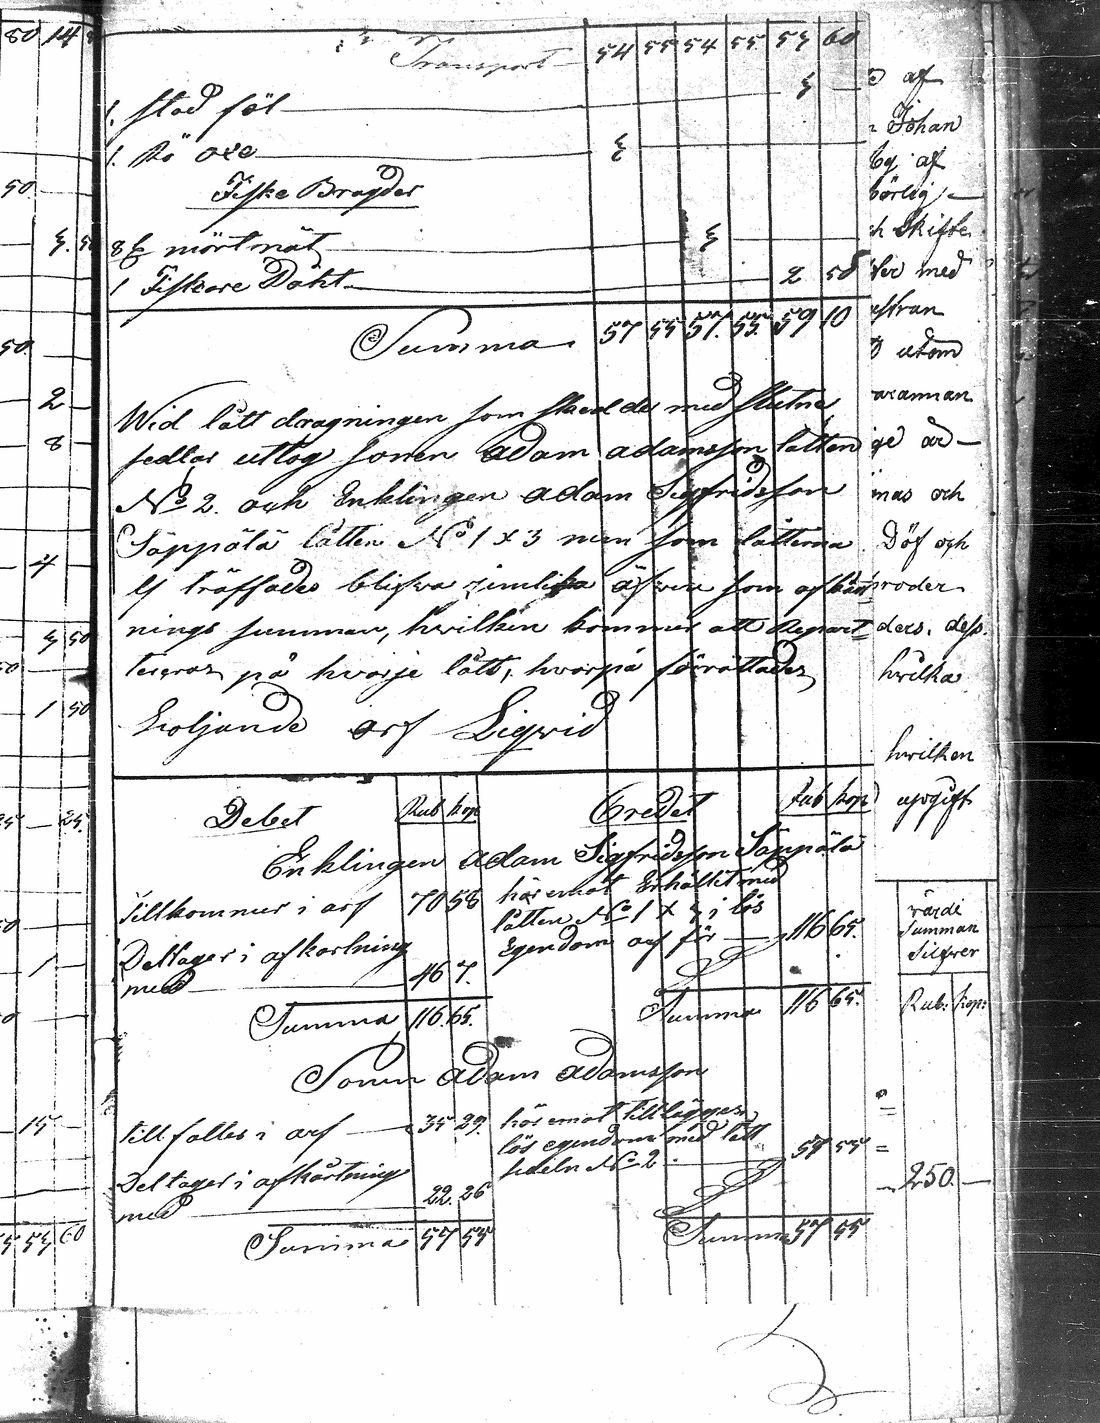 Transport 54 55 54 55 53 60
1. Stod föl 3
1. Rö oxe 3
Fiske Bragder
8 ℔ mörtnät 3
1 Fiskare Båht 2 50
Summa 57 55 57. 55. 59 10
Wid lått dragningen som skedde med slutne
sedlar uttog sonen Adam Adamsson latten
No 2. och Enklingen Adam Sigfridsson
Säppälä låtten No 1 x 3 men som låtterna
ej träffades blifwa äfwen som afkårt
nings summan, hwilken kommer att Repart
teras på hwarje lått, hwarpå förrättades
följande arf Liqvid
Debet Rub kop Credet Rub kop
Enklingen Adam Sigfridsson Säppälä
Tillkommer i arf 70 58 häremot Erhållit med
låtten No 1 x 3 i lös
Egendom arf för 116 65.
Deltager i afkortning
med 46 7.
Summa 116. 65. Summa 116 65.
Sonen Adam Adamsson
tillfaller i arf 35 29. häremot tillägges
lös egendom med lått
sedeln No 2 57 55
Deltager i afkårtning
med 22. 26
Summa 57 55 Summa 57 55
af
Johan
af
börlig
Skifte
med
utom
arannan
och
Döf och
broder
ders. dess.
hwilka
hwilken
upgift
värdi
Summan
Silfwer
Rub: kop:
250.
80 14
50.
50.
2
8
4
3 50
1 50
25.
1
15
53 60